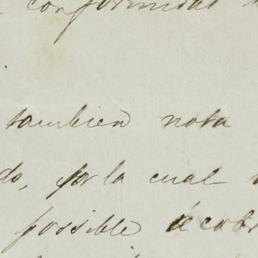 conformidad
tambien nota
do, por la cual
possible